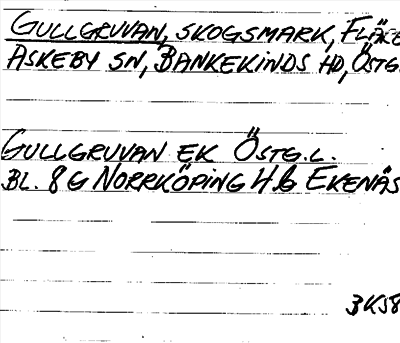 GULLGRUVAN, SKOGSMARK,
ASKEBY SN, BANKEKINDS HD, ÖSTG.
GULLGRUVAN EK ÖSTG.L.
BL. 8 G NORRKÖPING H.6 EKENÄS
3K58